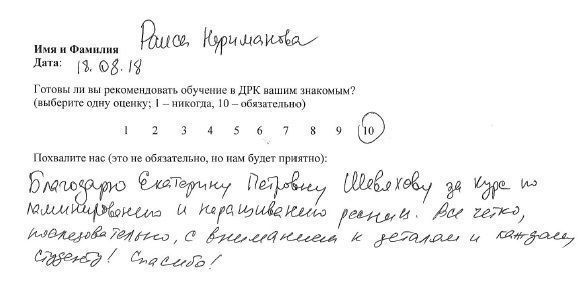 Имя и Фамилия Раиса Нариманова
Дата: 18.08.18
Готовы ли вы рекомендовать обучение в ДРК вашим знакомым?
(выберите одну оценку; 1 – никогда, 10 – обязательно)
1 2 3 4 5 6 7 8 9 10
Похвалите нас (это не обязательно, но нам будет приятно):
Благодарю Екатерину Петровну Шевякову за курс по
ламинированию и наращиванию ресниц. Все четко,
последовательно, с вниманием к деталям и каждому
студенту! Спасибо!